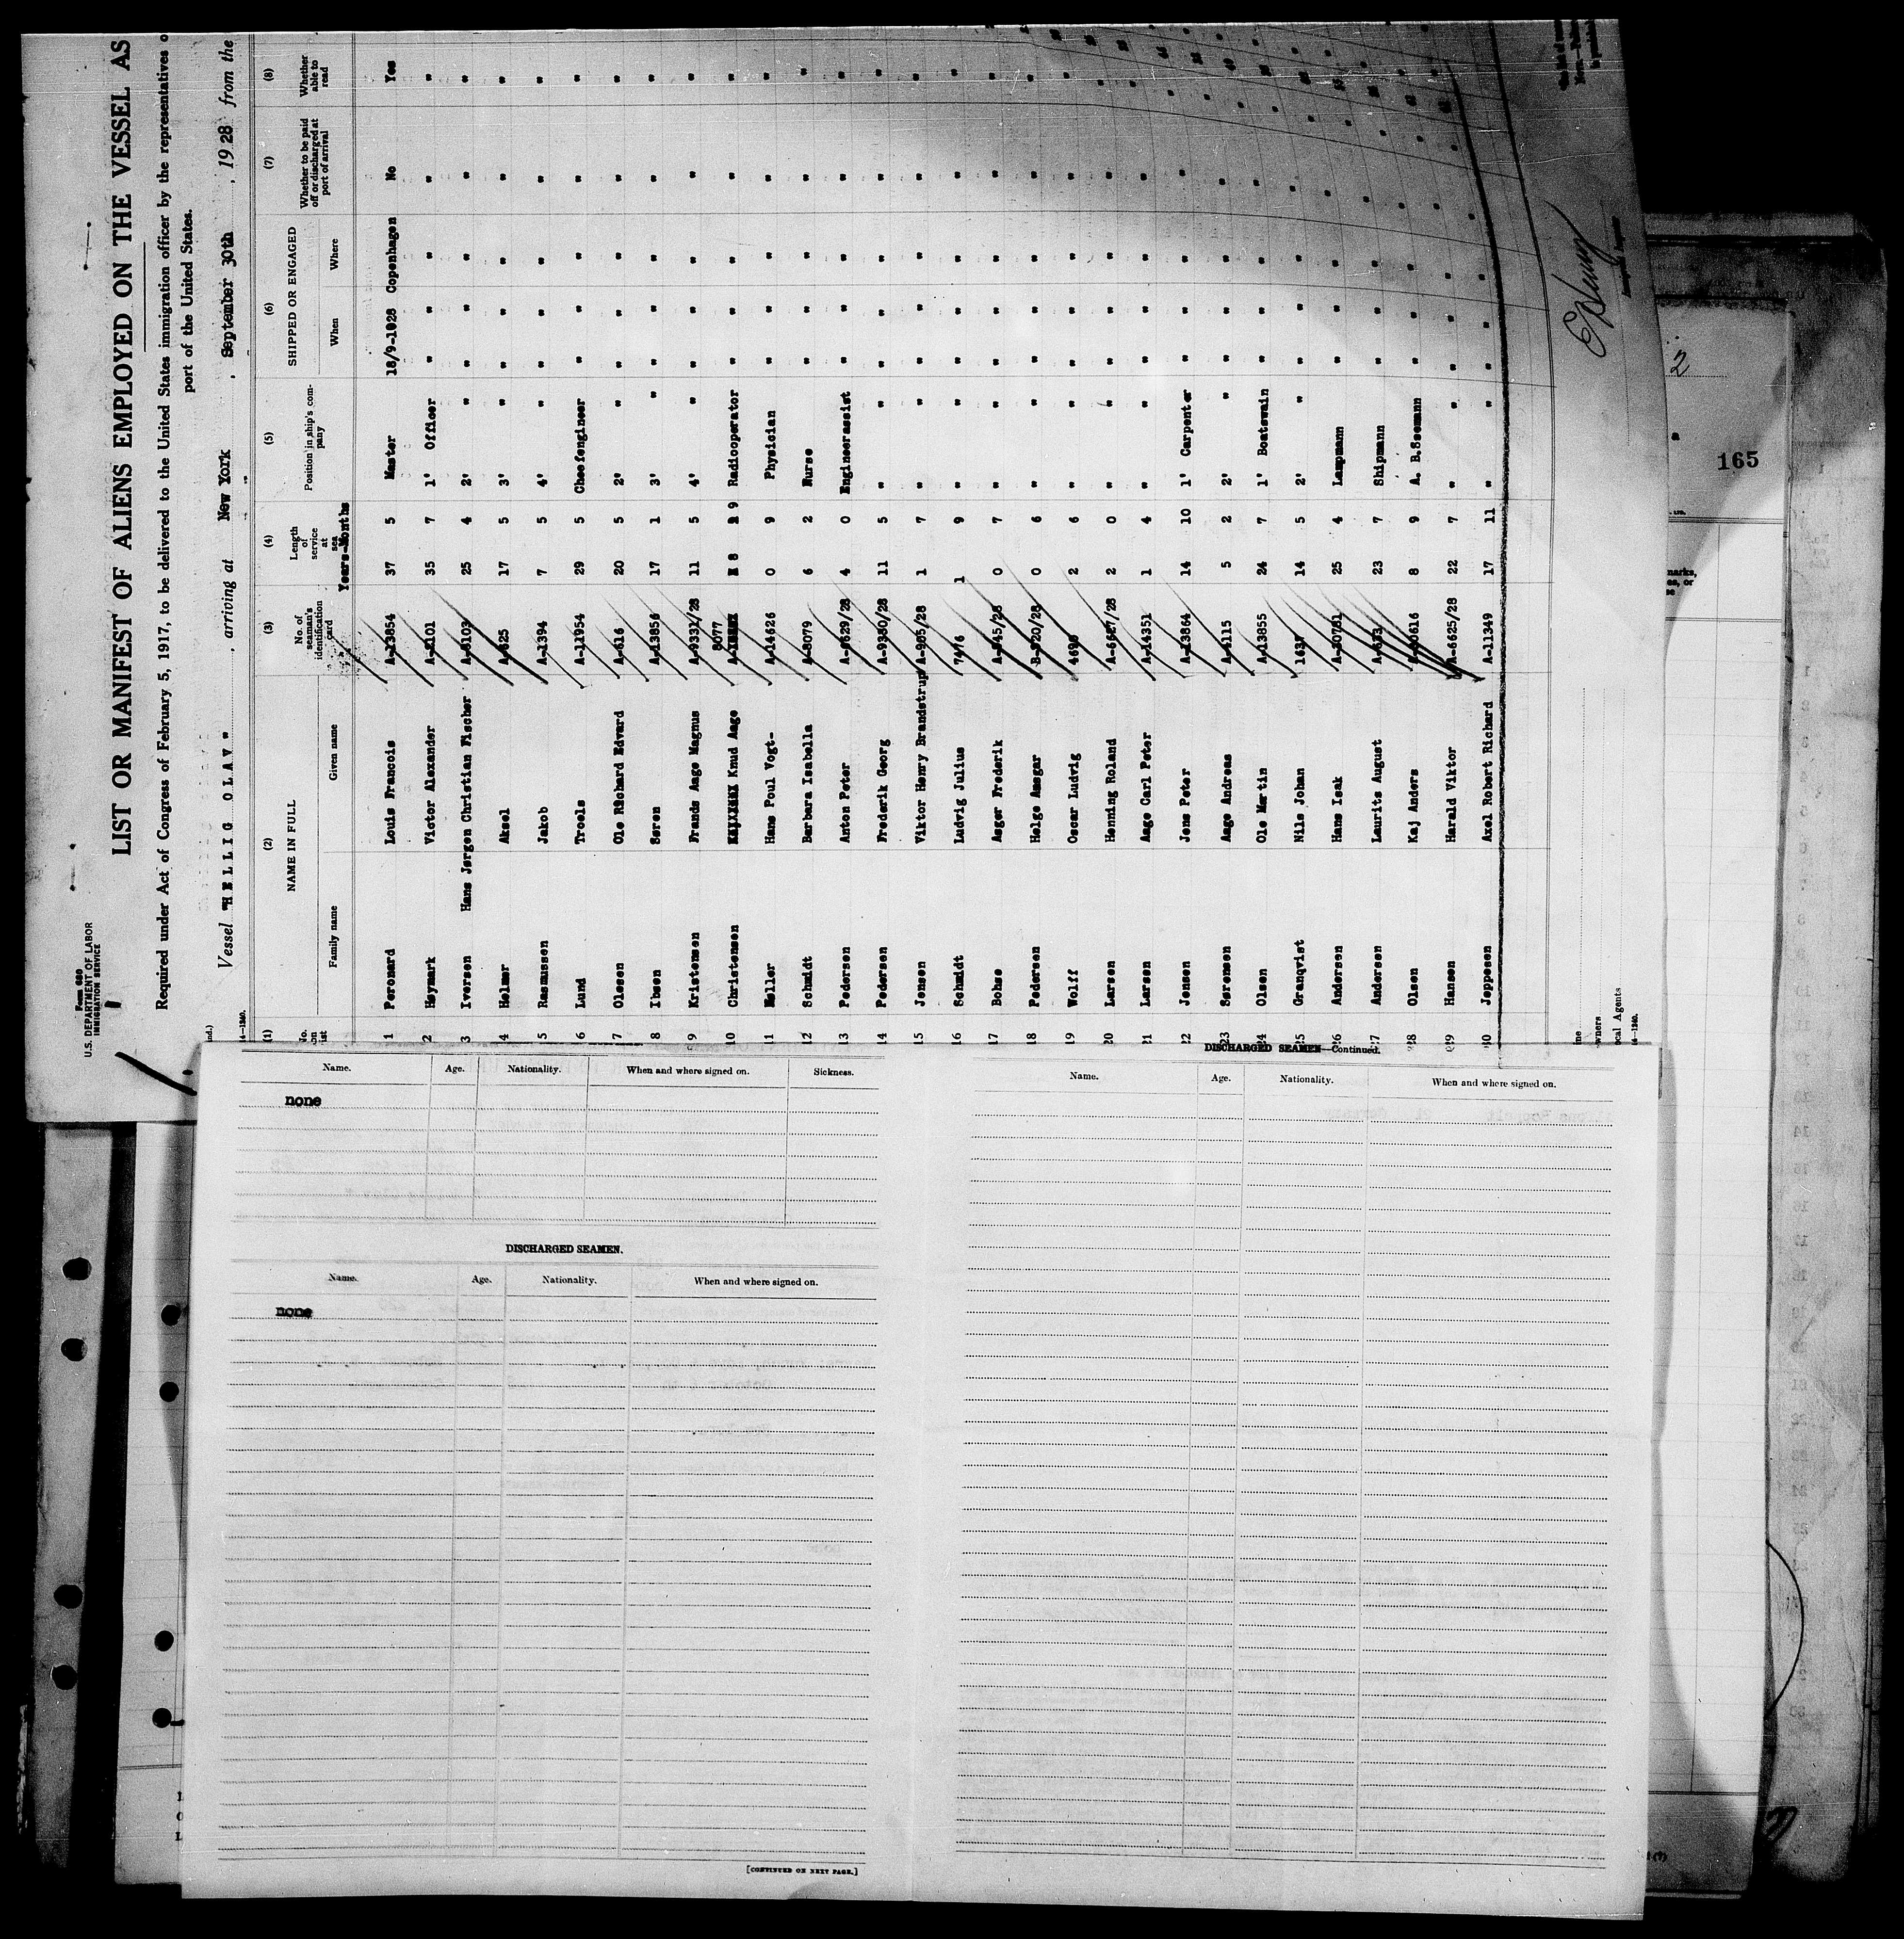 Form 680
U.S. DEPARTMENT OF LABOR
IMMIGRATION SERVICE
LIST OR MANIFEST OF ALIENS EMPLOYED ON THE VESSEL AS
Required under Act of Congress of February 5, 1917, to be delivered to the United States immigration officer by the representatives o
port of the United States.
Vessel "HELLIG OLAV" , arriving at New York , September 30th , 1928 from the
(1) (2) (3) (4) (5) (6) (7) (8)
NAME IN FULL No. of seaman's identification card Length of service at sea Position in ship's company SHIPPED OR ENGAGED Whether to be paid off or discharged at port of arrival Whether able to read
Family name Given name Years-Months When Where
1 Peronard Louis Francois A-13854 37 5 Master 18/9-1928 Copenhagen No Yes
2 Høymark Victor Alexander 35 7 1' Officer " " " " "
3 Iversen Hans Jørgen Christian Fischer 25 4 2' " " " " " "
4 Helmer Aksel A-625 17 5 3' " " " " " "
5 Rasmussen Jakob A-1394 7 5 4' " " " " " "
6 Lund Troels A-11954 29 5 Cheefengineer " " " " "
7 Olesen Ole Richard Edvard A-616 20 5 2' " " " " " "
8 Ibsen Søren A-13856 17 1 3' " " " " " "
9 Kristensen Frands Aage Magnus A-9331/28 11 5 4' " " " " " "
10 Christensen Knud Aage 8077 8 9 Radiooperator " " " " "
11 Møller Hans Poul Vogt- A-14626 0 9 Physician " " " " "
12 Schmidt Barbara Isabella A-8079 6 2 Nurse " " " " "
13 Pedersen Anton Peter 4 0 Engineerassist " " " " "
14 Pedersen Frederik Georg A-9330/28 11 5 " " " " " "
15 Jensen Viktor Henry Brandstrup A-905/28 1 7 " " " " " "
16 Schmidt Ludvig Julius 7476 1 9 " " " " " "
17 Bohse Asger Frederik A-845/28 0 7 " " " " " "
18 Pedersen Helge Ansgar B-820/28 0 6 " " " " " "
19 Wolff Oscar Ludvig 2 6 " " " " " "
20 Larsen Henning Roland A-6627/28 2 0 " " " " " "
21 Larsen Aage Carl Peter A-14351 1 4 " " " " " "
22 Jensen Jens Peter A-13864 14 10 1' Carpenter " " " " "
23 Sørensen Aage Andreas A-4115 5 2 2' " " " " " "
24 Olsen Ole Martin A-13855 24 7 1' Boatswain " " " " "
25 Granqvist Nils Johan 14 5 2' " " " " " "
26 Andersen Hans Isak 25 4 Lampmann " " " " "
27 Andersen Laurits August 23 7 Shipmann " " " " "
28 Olsen Kaj Anders 8 9 A. B. Seemann " " " " "
29 Hansen Harald Viktor A-6625/28 22 7 " " " " " "
30 Jeppesen Axel Robert Richard A-11349 17 11 " " " " " "
wners
ocal Agents
14-1240.
165
2
Name. Age. Nationality. When and where signed on. Sickness.
none
DISCHARGED SEAMEN.
Name. Age. Nationality. When and where signed on.
none
[CONTINUED ON NEXT PAGE.]
DISCHARGED SEAMEN—Continued.
Name. Age. Nationality. When and where signed on.